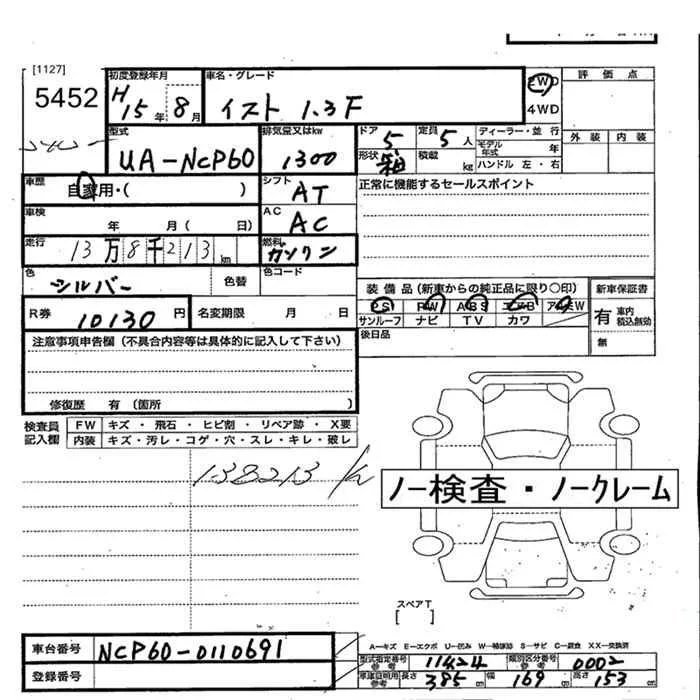 [1127]
5452
初度登録年月 H15年8月
車名・グレード イスト 1.3F
2WD
4WD
評価点
外装 内装
型式 UA-NCP60
排気量又はkw 1300
ドア 5
定員 5人
形状 箱
積載 kg
ディーラー・並行
モデル年式 年
ハンドル 左・右
車歴 自家用・( )
シフト AT
正常に機能するセールスポイント
車検 年 月( 日)
AC AC
走行 13万8千213km
燃料 ガソリン
色 シルバー 色替
色コード
装備品(新車からの純正品に限り○印)
新車保証書
PS PW ABS エアB アルミW
サンルーフ ナビ TV カワ
有 車内積込無効
無
R券 10130円
名変期限 月 日
後日品
注意事項申告欄(不具合内容等は具体的に記入して下さい)
修復歴 有(箇所 )
検査員記入欄
FW キズ・飛石・ヒビ割・リペア跡・X要
内装 キズ・汚レ・コゲ・穴・スレ・キレ・破レ
138213
ノー検査・ノークレーム
スペアT
[ ]
車台番号 NCP60-0110691
登録番号
A-キズ E-エクボ U-凹み W-補修跡 S-サビ C-腐食 XX-交換済
型式指定番号 参考 11424
類別区分番号 参考 0002
車庫証明用参考 長さ 385cm 幅 169cm 高さ 153cm